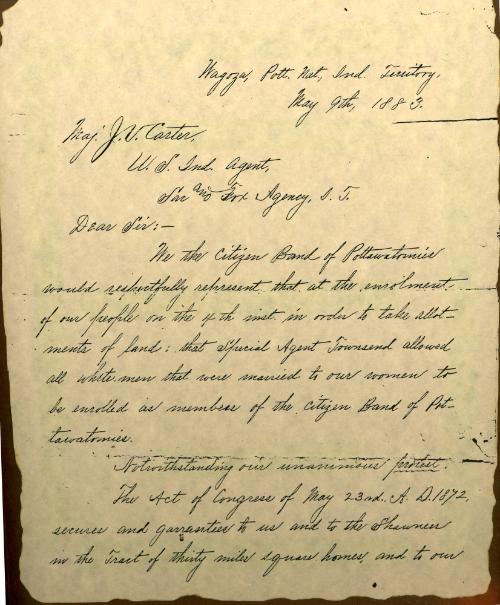 Wagoza, Pott. Nat, Ind. Territory,
May 9th, 1883.
Maj. J. V. Carter,
U. S. Ind. Agent,
Sac and Fox Agency, I. T.
Dear Sir:—
We the Citizen Band of Pottawatomies
would respectfully represent that at the enrolment
of our people on the 4th inst. in order to take allot-
ments of land: that Special Agent Townsend allowed
all white men that were married to our women to
be enrolled as members of the Citizen Band of Pot-
tawatomies.
Notwithstanding our unanimous protest.
The Act of Congress of May 23rd. A. D. 1872,
secures and garrantees to us and to the Shawnees
in the Tract of thirty miles square homes, and to our